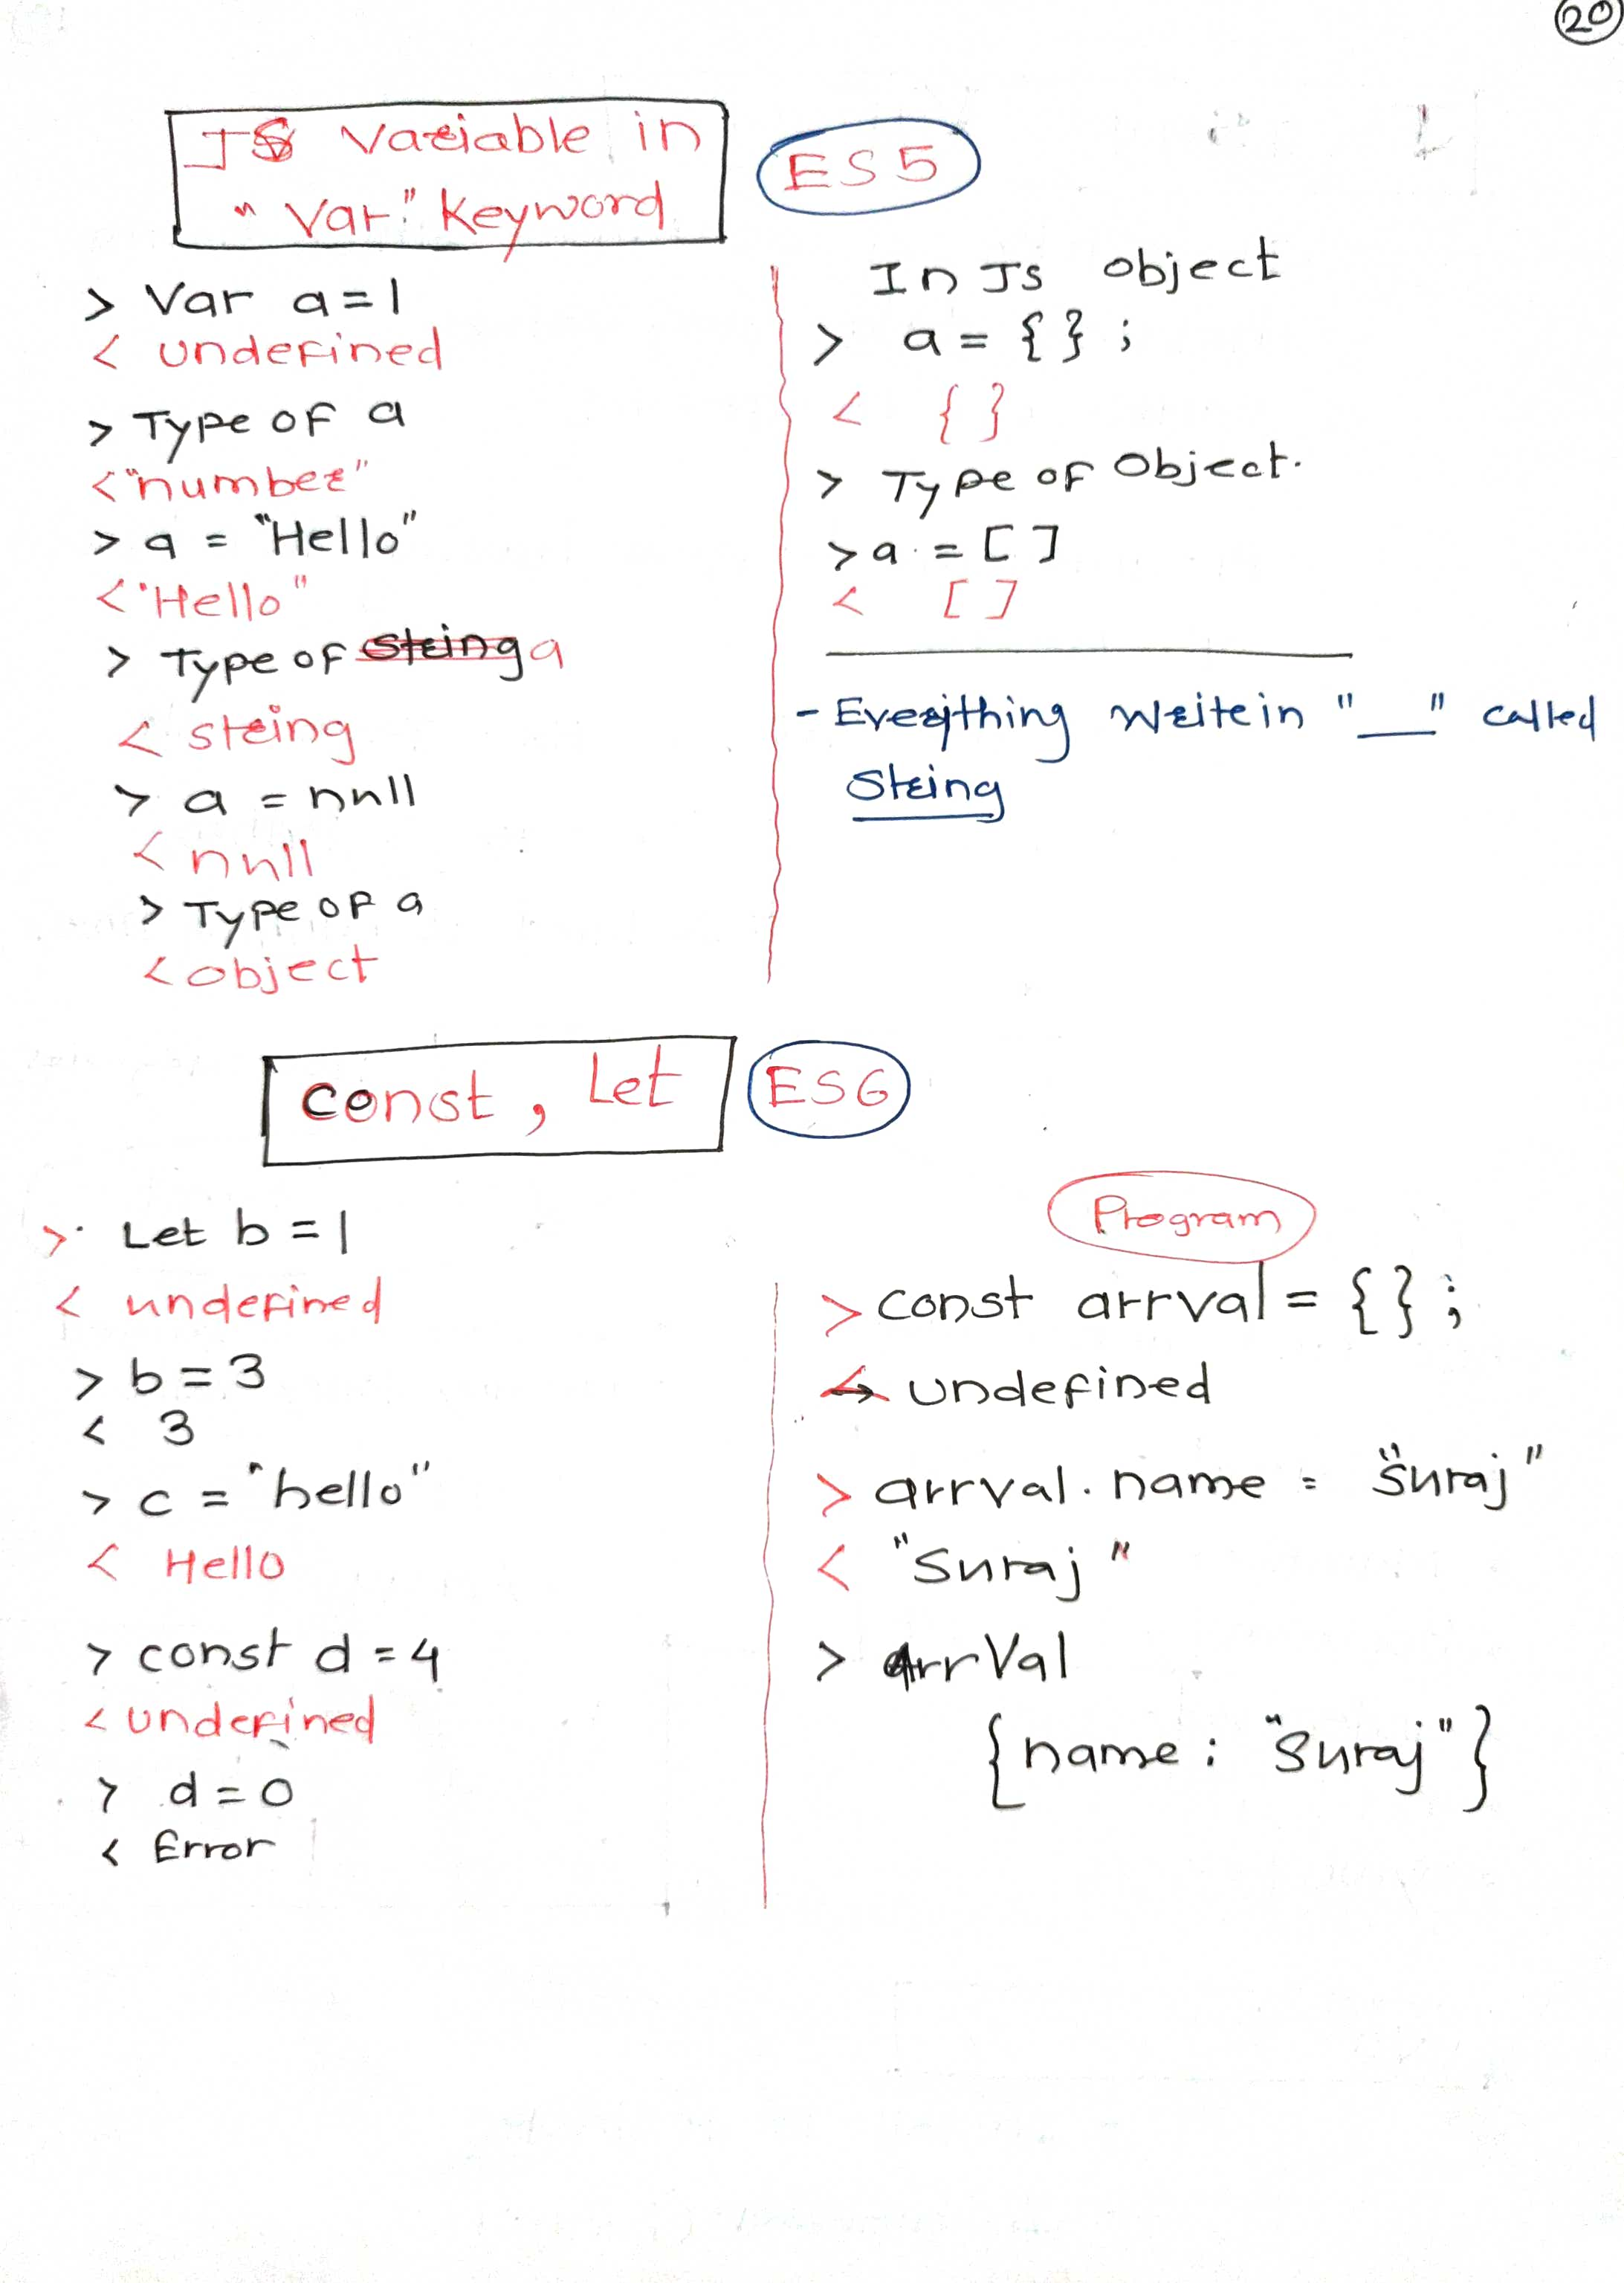 20
JS Variable in
"Var" Keyword
ES5
> Var a=1
< undefined
> Type of a
<"number"
> a = "Hello"
<"Hello"
> Type of String a
< string
> a = null
< null
> Type of a
< object
In Js object
> a = { } ;
< { }
> Type of Object.
> a = [ ]
< [ ]
- Everything Write in "__" called
String
const , Let
ES6
> Let b = 1
< undefined
> b = 3
< 3
> c = "hello"
< Hello
> const d = 4
< undefined
> d = 0
< Error
Program
> const arrval = { } ;
< undefined
> arrval.name = "Suraj"
< "Suraj"
> arrVal
{name : "Suraj"}